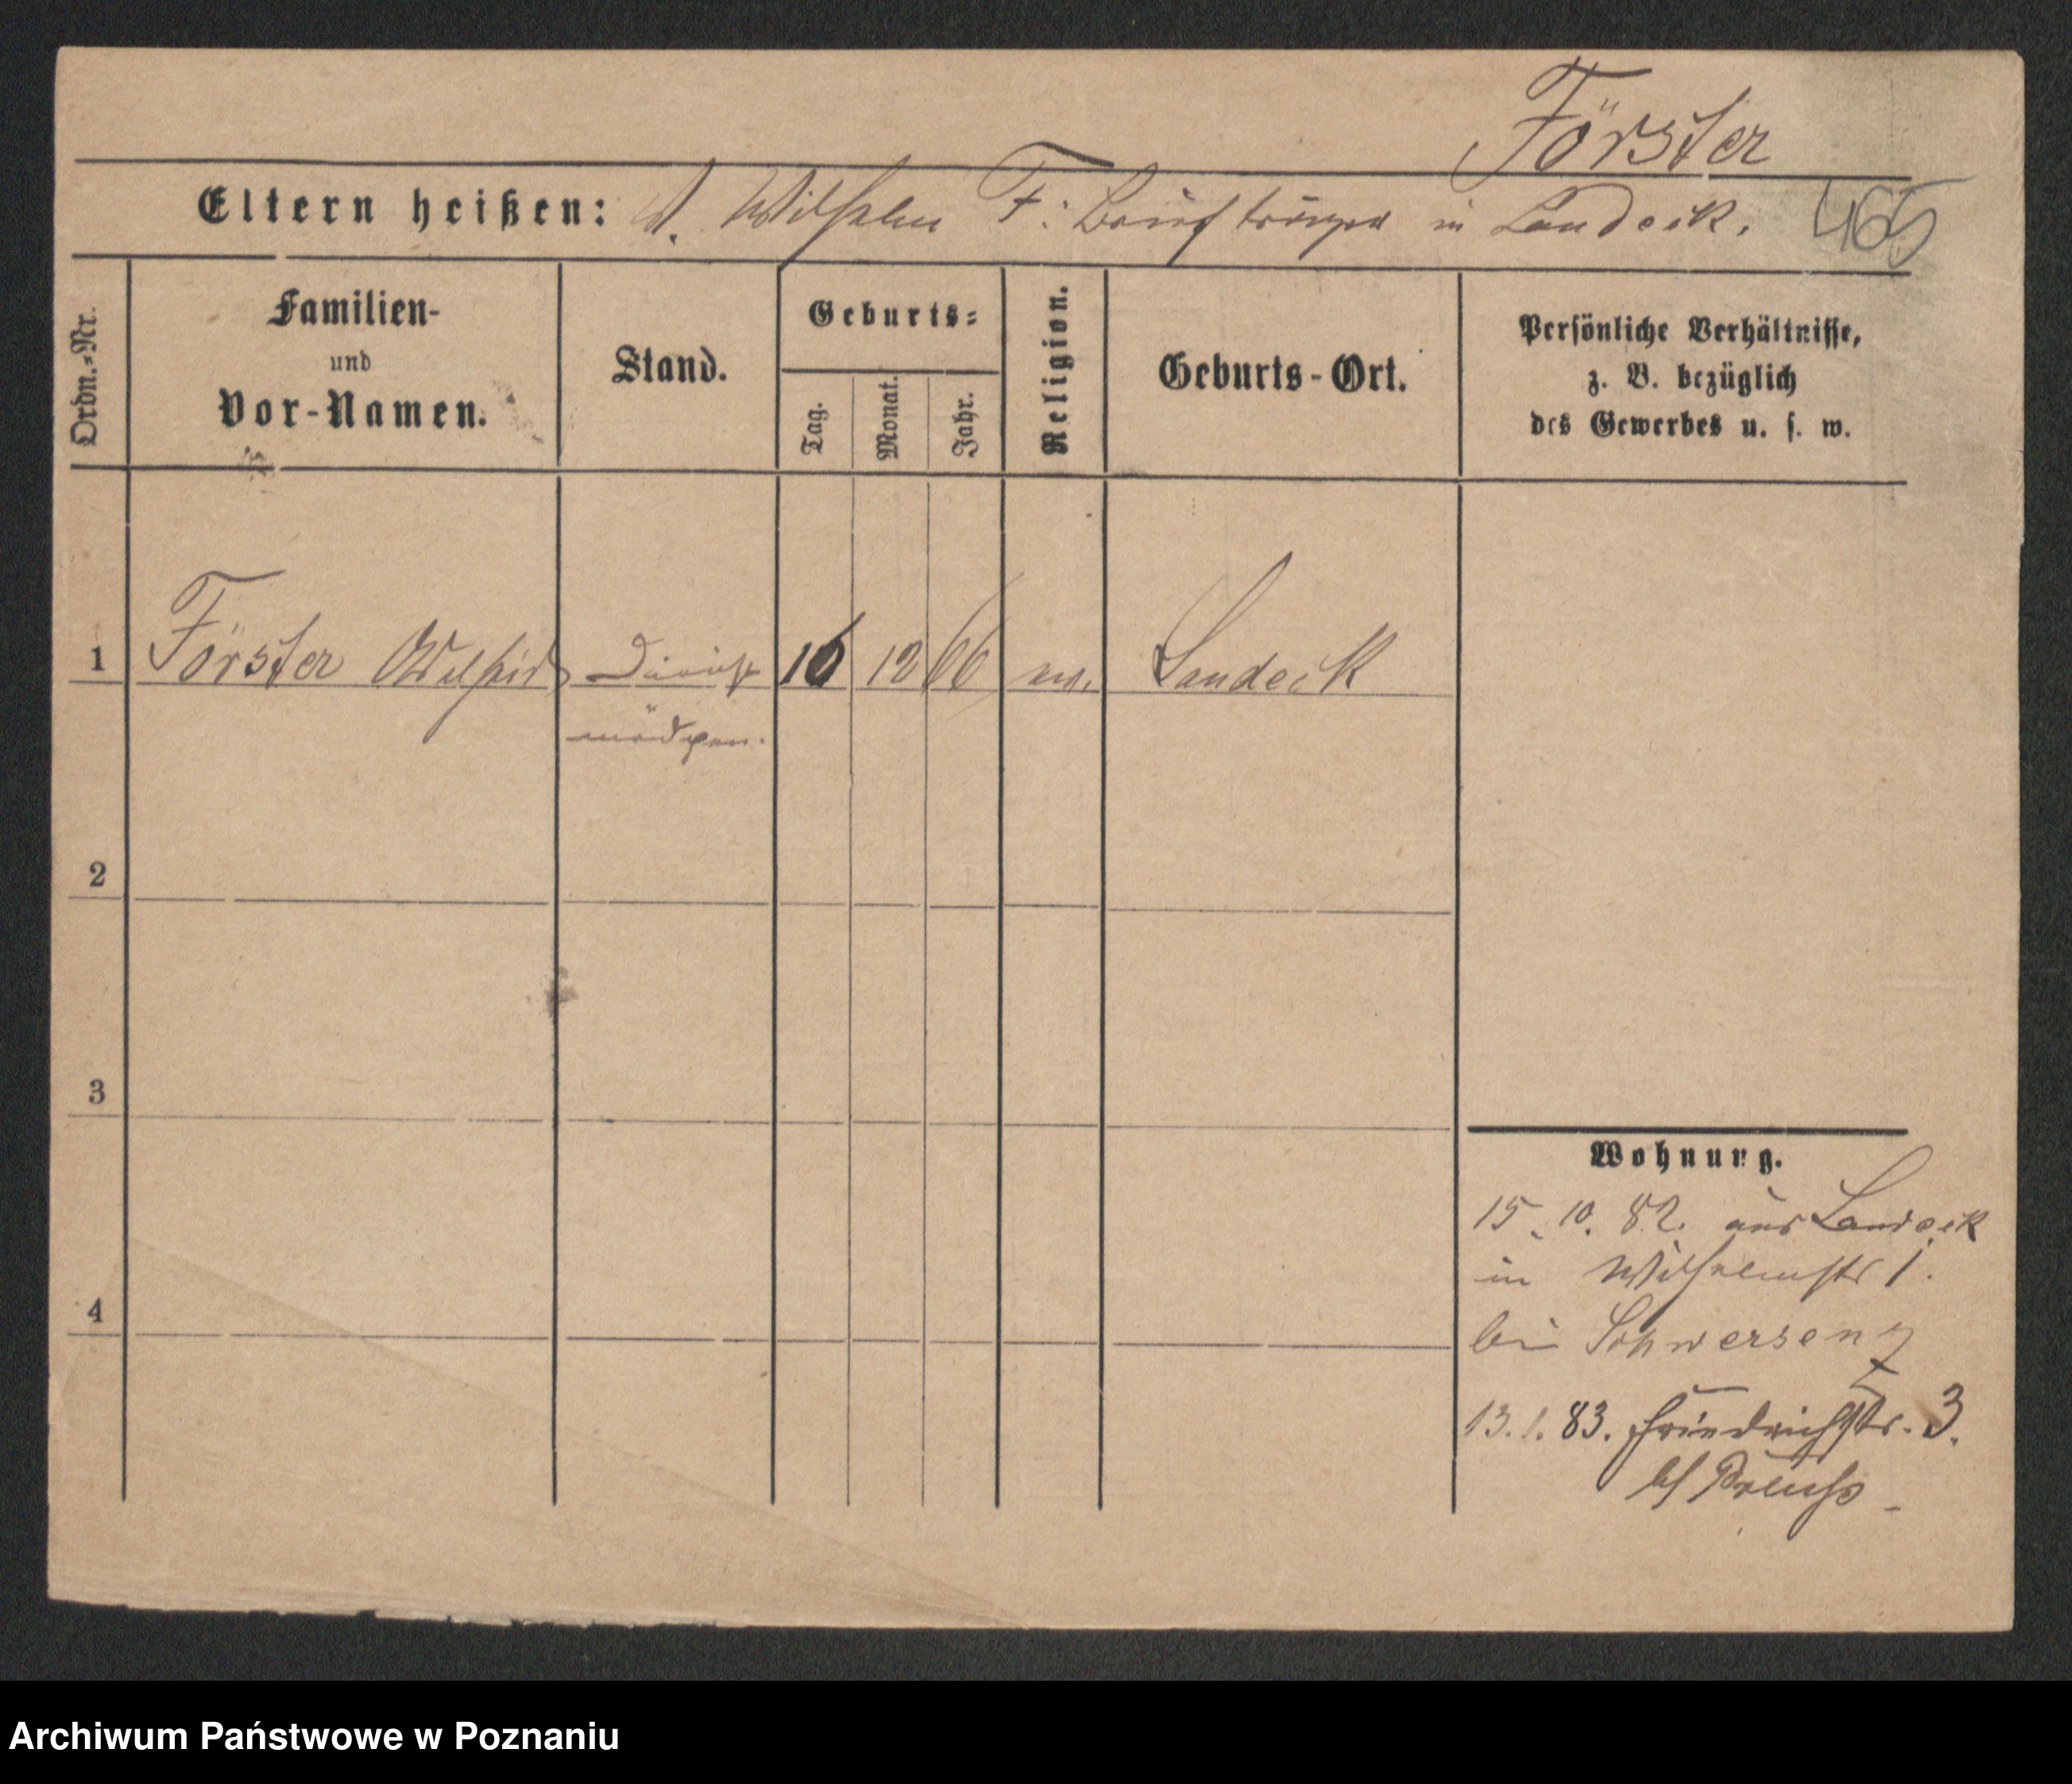 Förster
Eltern heißen: V. Wilhelm F: Briefträger in Landeck.
465
Ordn.-Nr.
Familien-
und
Vor-Namen.
Stand.
Geburts-
Tag.
Monat.
Jahr.
Religion.
Geburts-Ort.
Persönliche Verhältnisse,
z. B. bezüglich
des Gewerbes u. s. w.
1 Förster Dienst 16 12 66 Landeck
mädchen.
2
3
4
Wohnung.
15. 10. 82. aus Landeck
in Wilhelmstr 1.
bei Schwersenz
13. 1. 83. Friedrichstr. 3.
bei Preuß
Archiwum Państwowe w Poznaniu